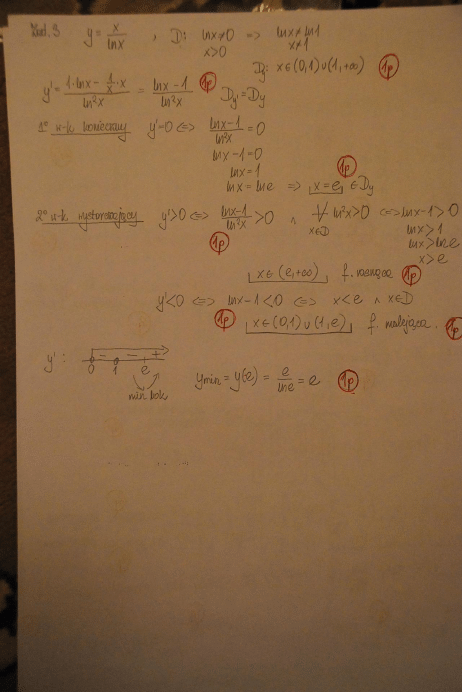 Zad. 3 y = x/lnx , D: lnx≠0 => lnx≠ln1
x>0 x≠1
Dy: x∈(0,1)∪(1,+∞) 1p
y' = (1·lnx - 1/x·x)/ln²x = (lnx-1)/ln²x 1p Dy'=Dy
1° w-k konieczny y'=0 <=> (lnx-1)/ln²x = 0
lnx-1=0
lnx=1 1p
lnx=lne => x=e ∈Dy
2° w-k wystarczający y'>0 <=> (lnx-1)/ln²x >0 ∧ ∀ x∈D ln²x>0 <=> lnx-1>0
1p lnx>1
lnx>lne
x>e
x∈(e,+∞) f. rosnąca 1p
y'<0 <=> lnx-1<0 <=> x<e ∧ x∈D
1p x∈(0,1)∪(1,e) f. malejąca 1p
y': - - +
0 1 e
min lok
ymin = y(e) = e/lne = e 1p